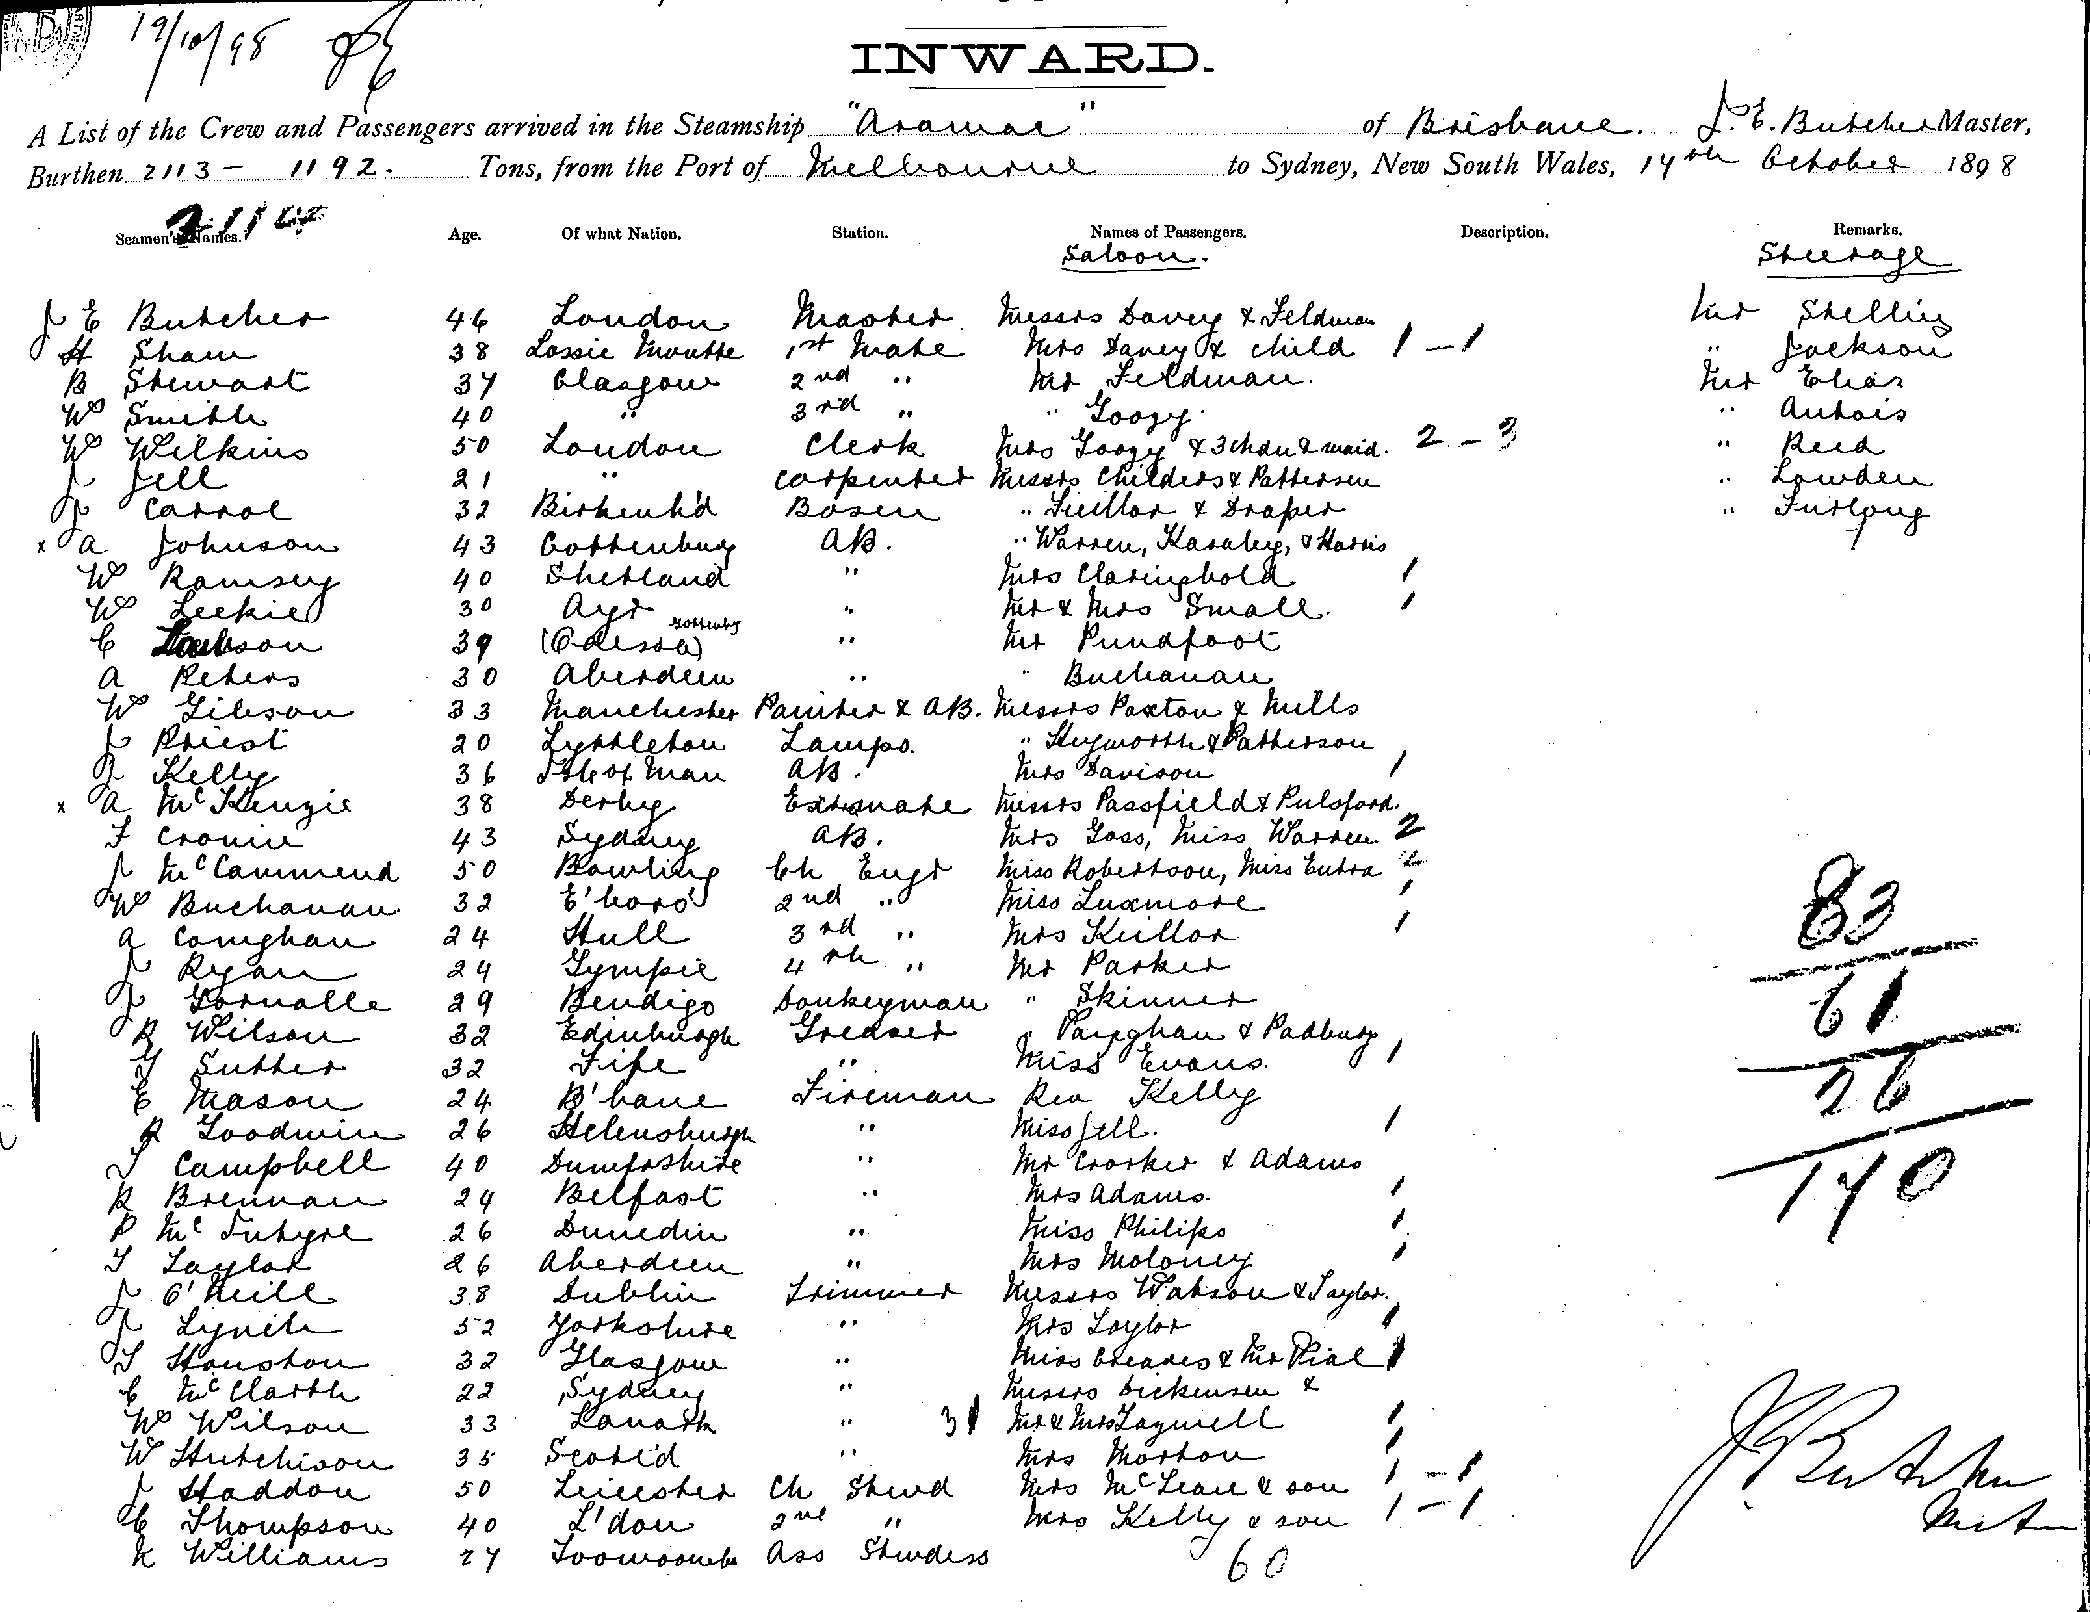 19/10/98
INWARD.
A List of the Crew and Passengers arrived in the Steamship "Aramac" of Brisbane. J. E. Butcher Master,
Burthen 2113 - 1192. Tons, from the Port of Melbourne to Sydney, New South Wales, 14th October 1898
Seamen's Names. Age. Of what Nation. Station. Names of Passengers. Description. Remarks.
Saloon. Steerage
J E Butcher 46 London Master Messrs Davey & Feldman Mr Stelling
H Sham 38 Lossie Mouthe 1st Mate Mrs Davey & child 1 - 1 " Jackson
B Stewart 37 Glasgow 2nd " Mr Feldman. Mr Elias
Wm Smith 40 " 3rd " " Goozy " Antois
Wm Wilkins 50 London Clerk Mrs Goozy & 3 chdn & maid. 2 - 3 " Reid
J Jell 21 " Carpenter Messrs Childers & Pattersen " Lowden
J Carrol 32 Birkenh'd Bosen " & Draper " Furlong
x A Johnson 43 Gottenburg AB. " Warren, & Harris
Wm Ramsey 40 Shetland " Mrs Claringbold 1
Wm Leckie 30 Ayr " Mr & Mrs Small. 1
C 39 (Odessa) " Mr Pundfoot
A Peters 30 Aberdeen " " Buchanan
Wm Gibson 33 Manchester Painter & AB. Messrs Paxton & Mills
J Priest 20 Lyttleton Lamps. " Heyworth & Patterson
J Kelly 36 Isle of Man AB. Mrs Davison 1
x A McKenzie 38 Derby Messrs Passfield & Pulsford.
F Cronin 43 Sydney AB. Mrs Goss, Miss Warren 2
J McCammend 50 Bowling Ch Engr Miss Robertson, Miss 2
Wm Buchanan 32 E'boro' 2nd " Miss Luxmore 1
A Conighan 24 Hull 3rd " Mrs Keillor 1
J Ryan 24 Gympie 4th " Mr Parker
J Gornalle 29 Bendigo Donkeyman " Skinner
R Wilson 32 Edinburgh Greaser " & Padbury
G Sutter 32 Fife " Miss Evans. 1
E Mason 24 B'bane Fireman Rev Kelly
R Goodwin 26 Helensburgh " Miss Jell. 1
T Campbell 40 Dumfrshire " Mr Crocker & Adams
R Brennan 24 Belfast " Mrs Adams. 1
P McIntyre 26 Dunedin " Miss Philips 1
T Taylor 26 Aberdeen " Mrs Moloney 1
J O'Neill 38 Dublin Trimmer Messrs Watson & Taylor.
J Lynch 52 Yorkshire " Mrs Taylor 1
T Houston 32 Glasgow " Miss & Mr 1
C McClarth 22 Sydney " Messrs Dickensen &
Wm Wilson 33 Lanark " 31 Mr & Mrs Tagwell 1
W Hutchison 35 Scotl'd " Mrs Morton 1
J Haddon 50 Leicester Ch Stewd Mrs McLean & son 1 - 1
C Thompson 40 L'don 2nd " Mrs Kelly & son 1 - 1
K Williams 27 Toowoomba Ass Stewdess
60
83
61
26
170
J E Butcher